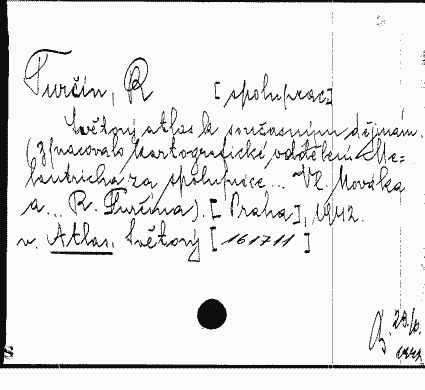 Turčín, R [spoluprac]
Světový atlas k současným dějinám.
(Zpracovalo kartografické oddělení Me=
lantricha za spolupráce... Vl. Nováka
a... R. Turčína). [Praha], 1942.
v. Atlas, Světový [161711]